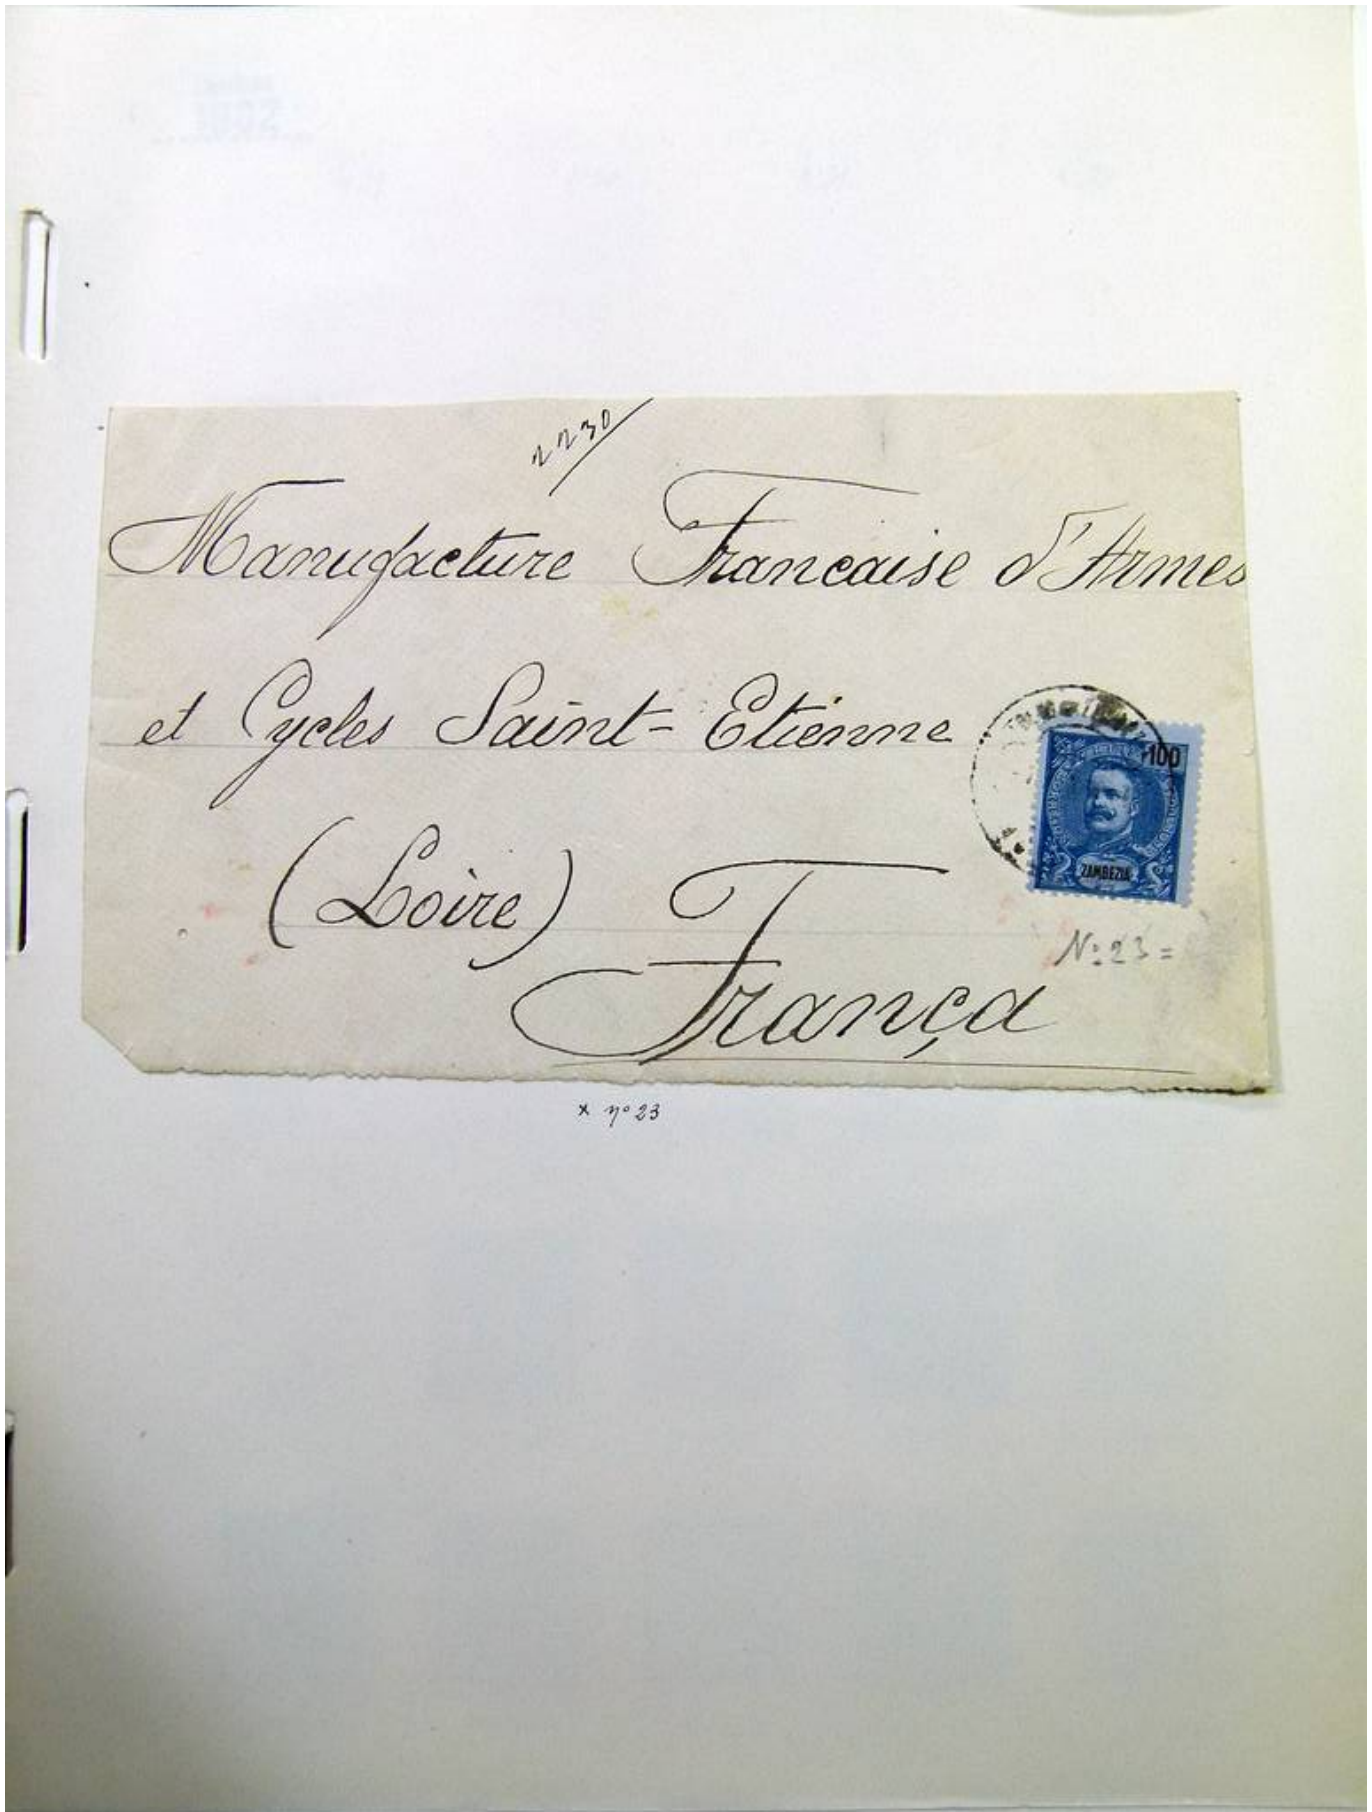 2230
Manufacture Francaise d'Armes
et Cycles Saint-Etienne
(Loire) França
100
ZAMBEZIA
Nº 23 =
x nº 23